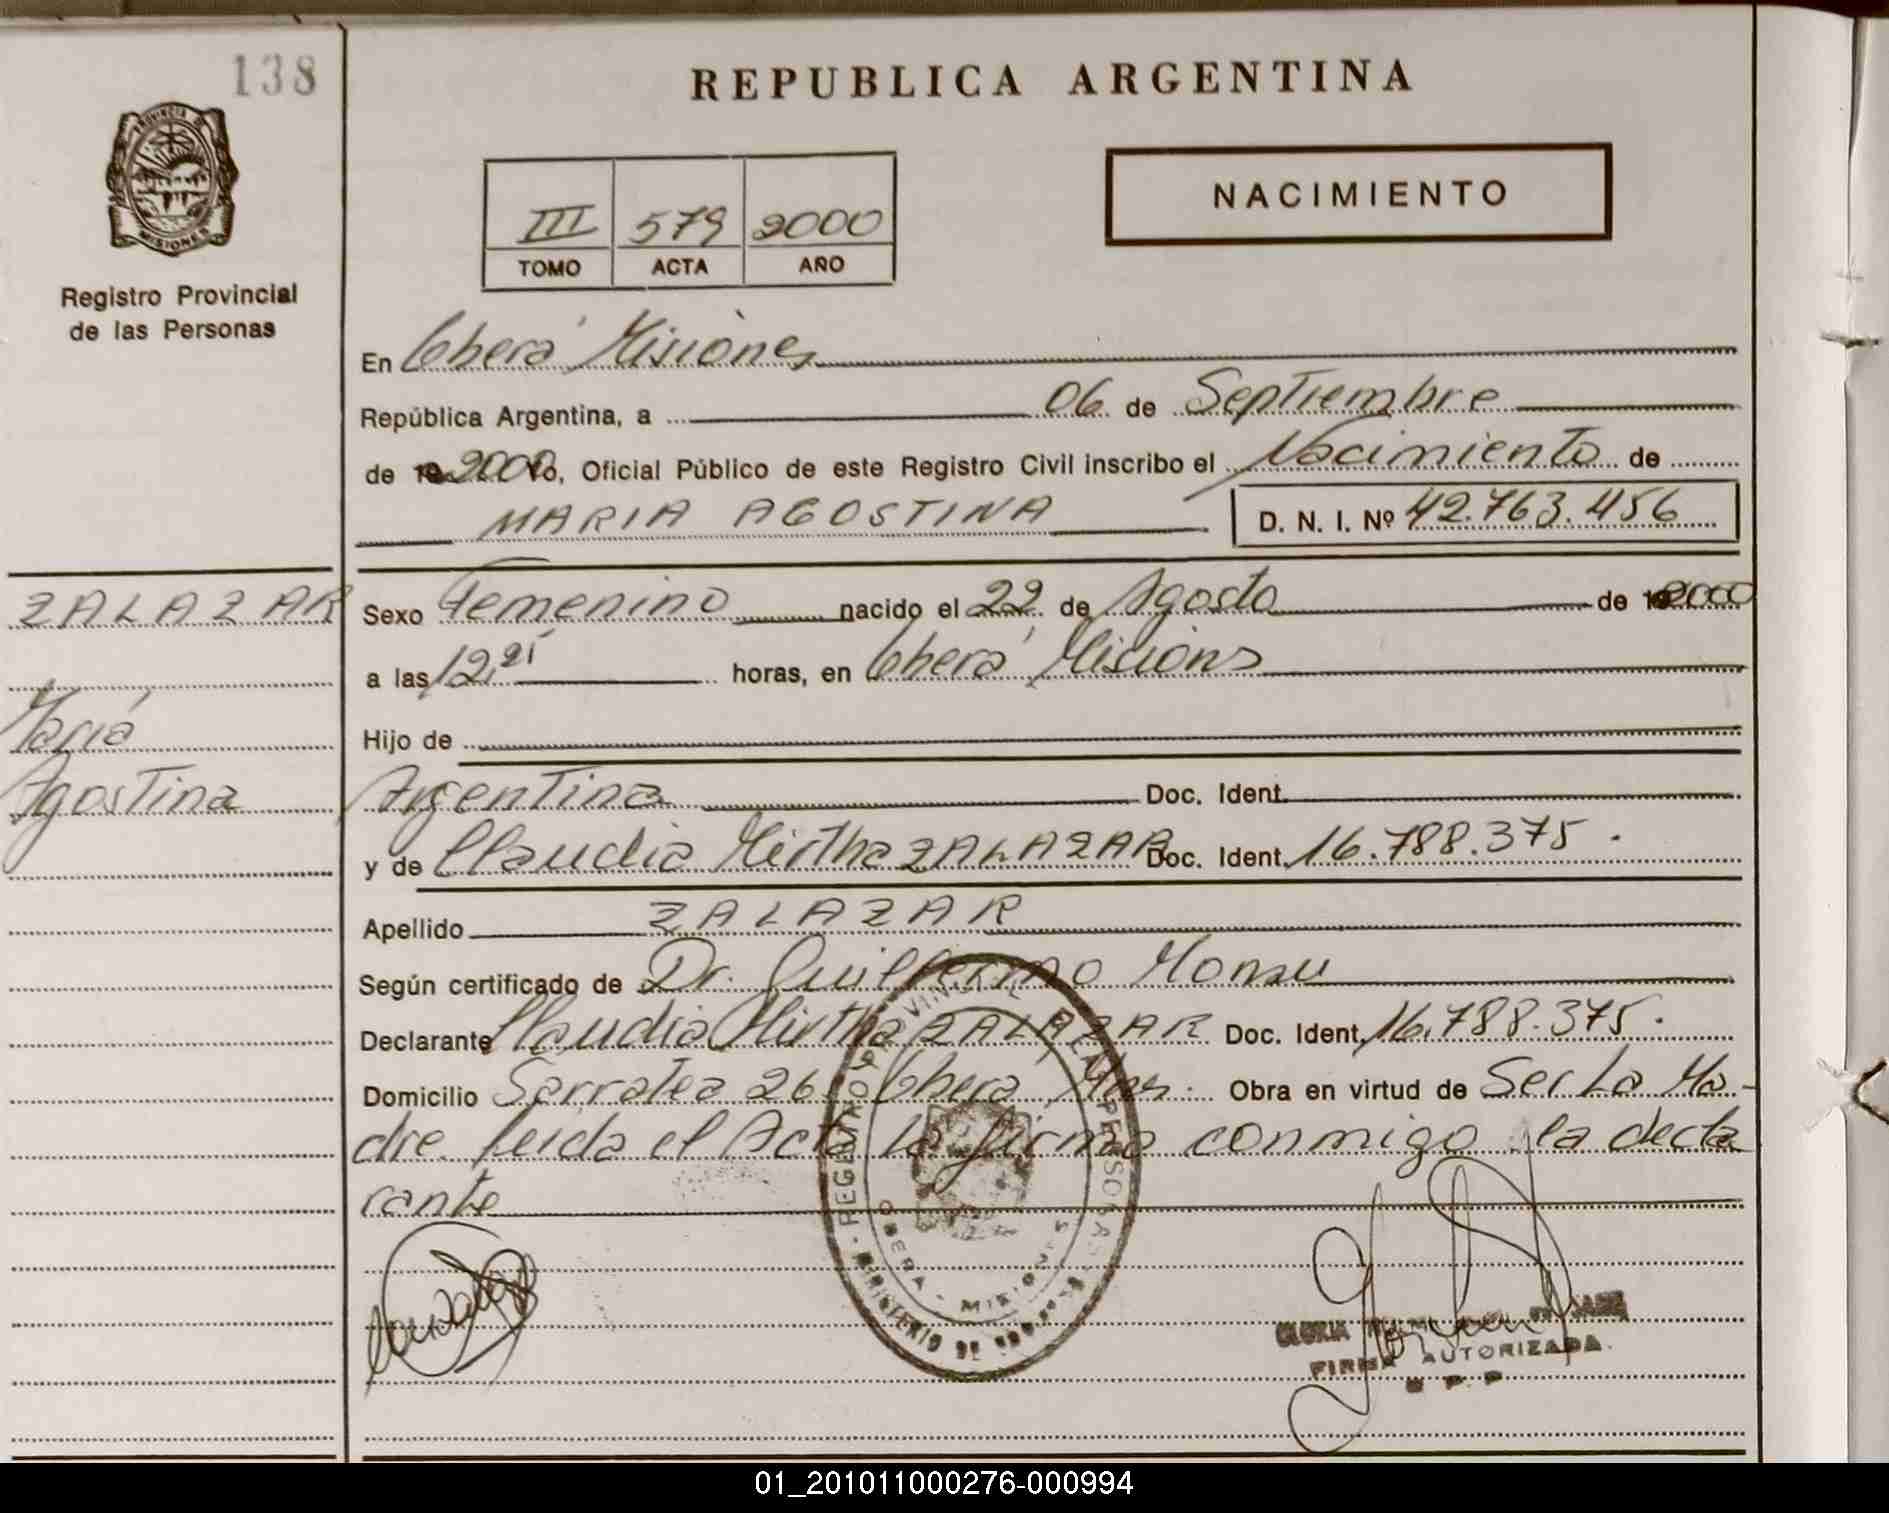 138
REPUBLICA ARGENTINA
PROVINCIA DE
MISIONES
NACIMIENTO
III 579 2000
TOMO ACTA AÑO
Registro Provincial
de las Personas
En Oberá Misiones
República Argentina, a 06 de Septiembre
de 19 2000 Yo, Oficial Público de este Registro Civil inscribo el Nacimiento de
MARIA AGOSTINA D. N. I. Nº 42.763.456
ZALAZAR
Sexo Femenino nacido el 22 de Agosto de 19 2000
a las 12,21 horas, en Oberá Misions
María
Hijo de
Agostina
Argentina Doc. Ident.
y de Claudia Mirtha ZALAZAR Doc. Ident. 16.788.375.
Apellido ZALAZAR
Según certificado de Dr. Guillermo Monsu
Declarante Claudia Mirtha ZALAZAR Doc. Ident. 16.788.375.
Domicilio Sarratea 26 Oberá, Mnes. Obra en virtud de Ser La Ma-
dre leida el Acta la firma conmigo la decla
rante
REGISTRO PROVINCIAL DE LAS PERSONAS
OBERA - MISIONES
MINISTERIO DE
GLORIA
FIRMA AUTORIZADA.
R. P. P.
01_201011000276-000994